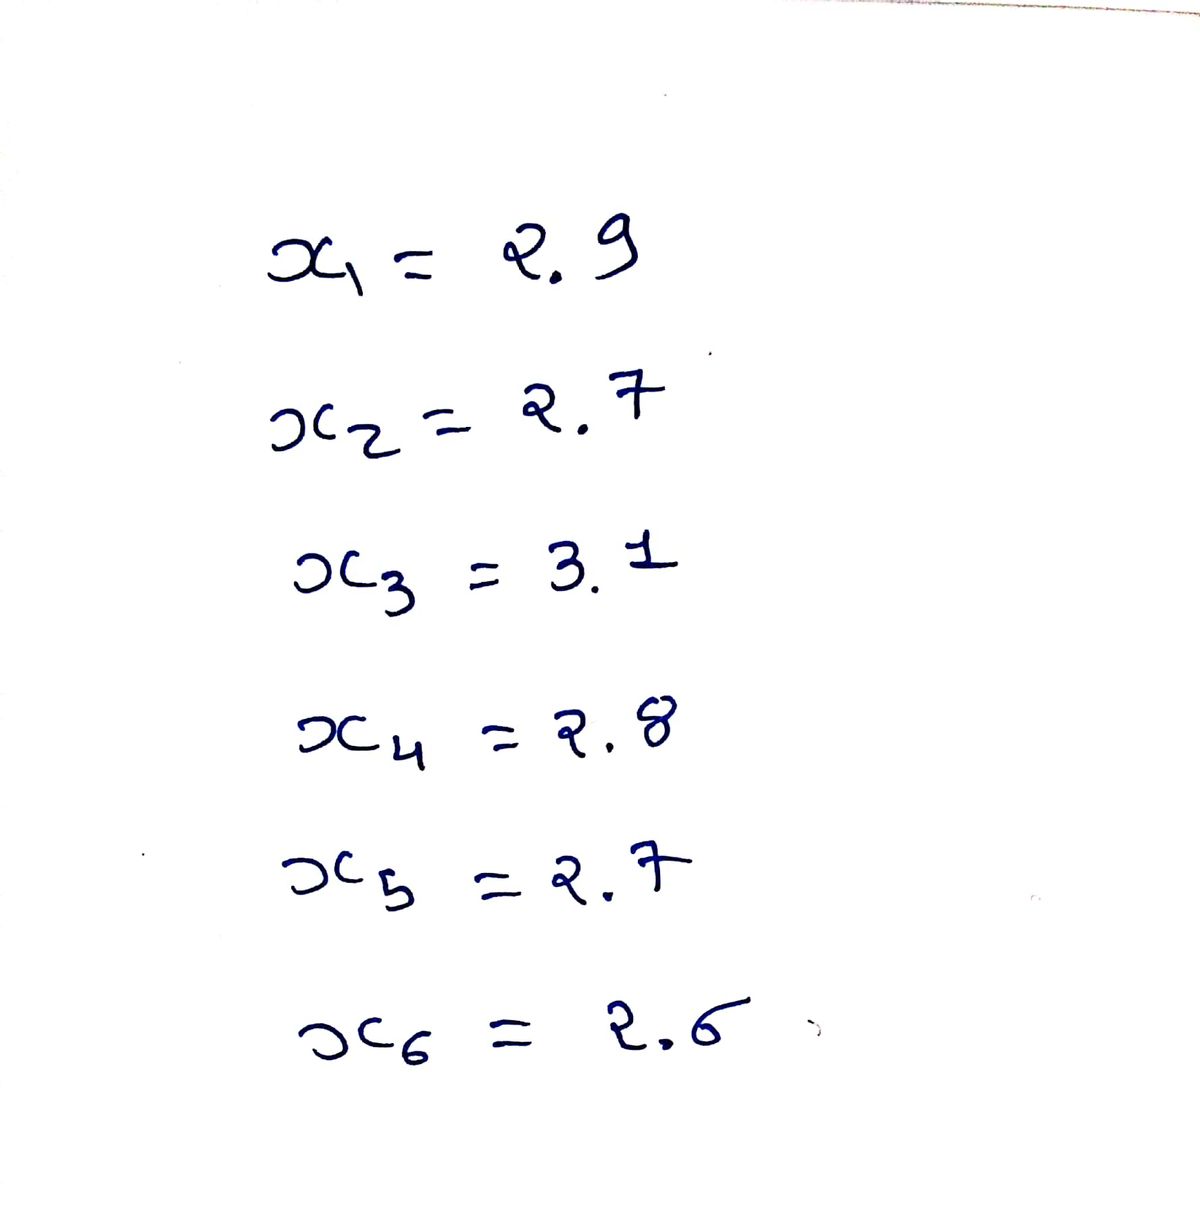 x₁ = 2.9
x₂ = 2.7
x₃ = 3.1
x₄ = 2.8
x₅ = 2.7
x₆ = 2.6